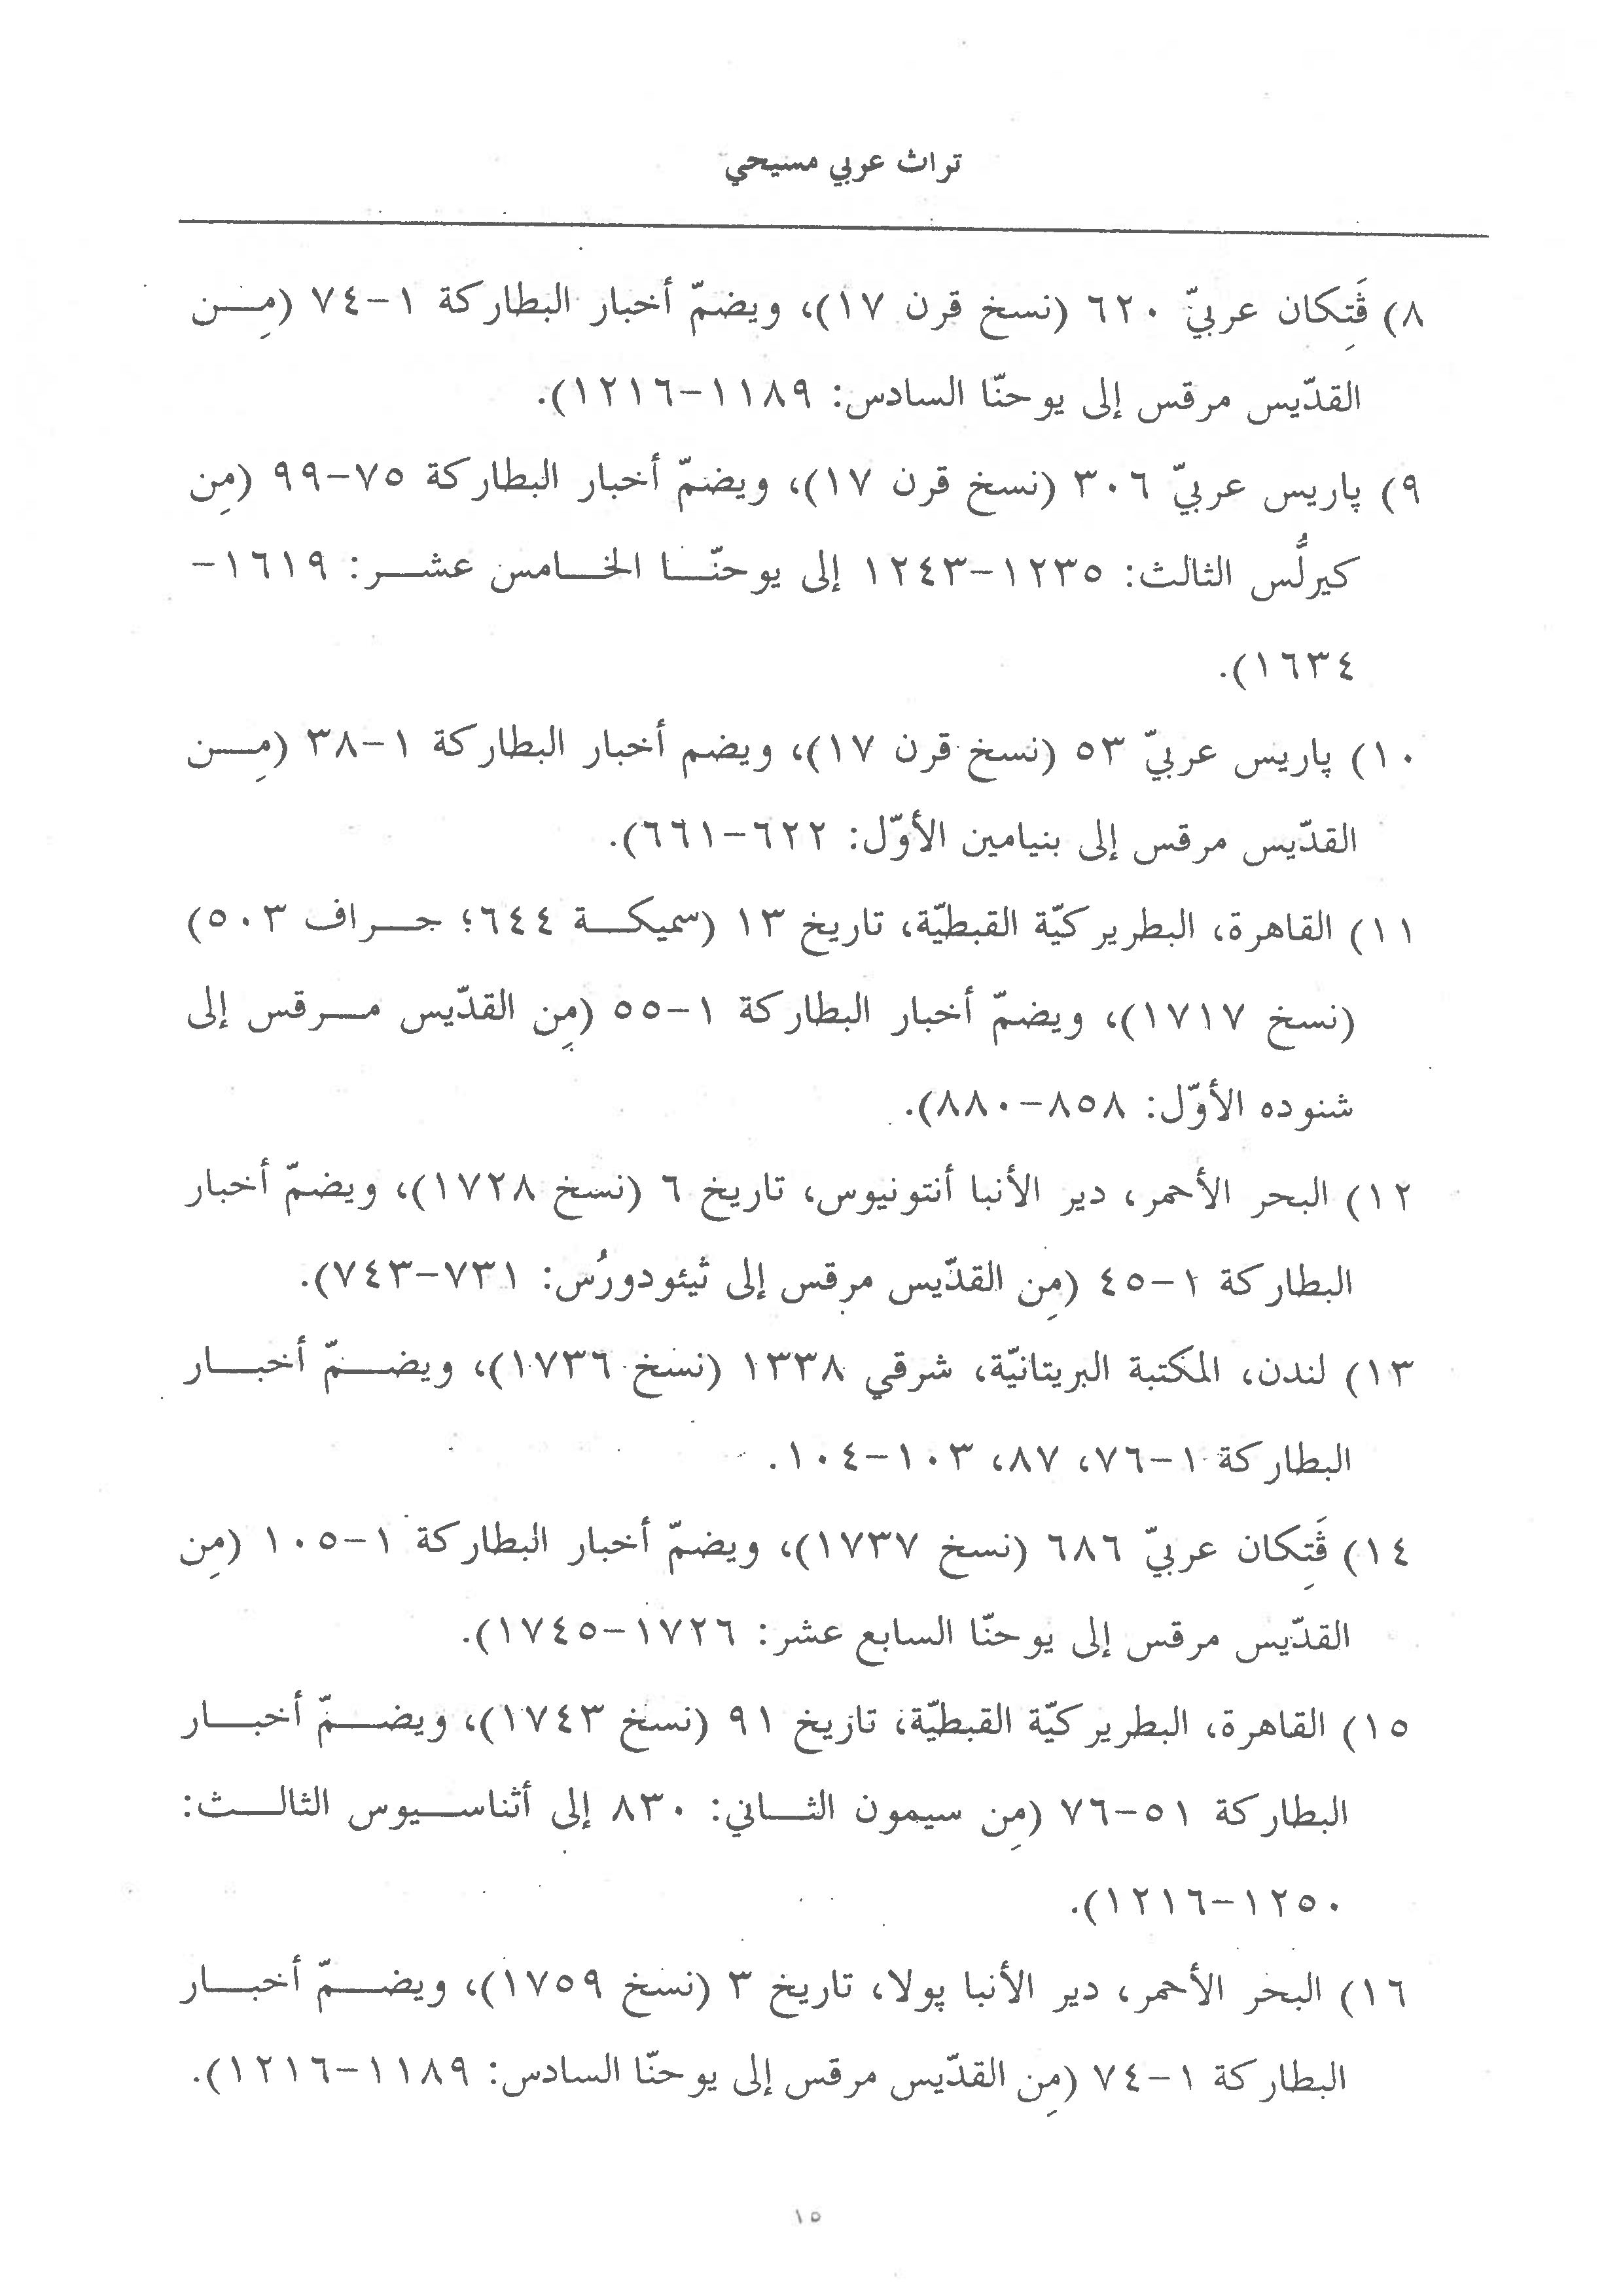 تراث عربي مسيحي
٨) ڤَتِكان عربيّ ٦٢٠ (نسخ قرن ١٧)، ويضمّ أخبار البطاركة ١-٧٤ (مِن
القدّيس مرقس إلى يوحنّا السادس: ١١٨٩-١٢١٦).
٩) پاريس عربيّ ٣٠٦ (نسخ قرن ١٧)، ويضمّ أخبار البطاركة ٧٥-٩٩ (مِن
كيرلُّس الثالث: ١٢٣٥-١٢٤٣ إلى يوحنّا الخامس عشر: ١٦١٩-
١٦٣٤).
١٠) پاريس عربيّ ٥٣ (نسخ قرن ١٧)، ويضم أخبار البطاركة ١-٣٨ (مِن
القدّيس مرقس إلى بنيامين الأوّل: ٦٢٢-٦٦١).
١١) القاهرة، البطريركيّة القبطيّة، تاريخ ١٣ (سميكة ٦٤٤؛ جراف ٥٠٣)
(نسخ ١٧١٧)، ويضمّ أخبار البطاركة ١-٥٥ (مِن القدّيس مرقس إلى
شنوده الأوّل: ٨٥٨-٨٨٠).
١٢) البحر الأحمر، دير الأنبا أنتونيوس، تاريخ ٦ (نسخ ١٧٢٨)، ويضمّ أخبار
البطاركة ١-٤٥ (مِن القدّيس مرقس إلى ثيئودورُس: ٧٣١-٧٤٣).
١٣) لندن، المكتبة البريتانيّة، شرقي ١٣٣٨ (نسخ ١٧٣٦)، ويضمّ أخبار
البطاركة ١-٧٦، ٨٧، ١٠٣-١٠٤.
١٤) ڤَتِكان عربيّ ٦٨٦ (نسخ ١٧٣٧)، ويضمّ أخبار البطاركة ١-١٠٥ (مِن
القدّيس مرقس إلى يوحنّا السابع عشر: ١٧٢٦-١٧٤٥).
١٥) القاهرة، البطريركيّة القبطيّة، تاريخ ٩١ (نسخ ١٧٤٣)، ويضمّ أخبار
البطاركة ٥١-٧٦ (مِن سيمون الثاني: ٨٣٠ إلى أثناسيوس الثالث:
١٢٥٠-١٢١٦).
١٦) البحر الأحمر، دير الأنبا پولا، تاريخ ٣ (نسخ ١٧٥٩)، ويضمّ أخبار
البطاركة ١-٧٤ (مِن القدّيس مرقس إلى يوحنّا السادس: ١١٨٩-١٢١٦).
١٥